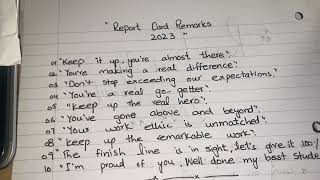 "Report Card Remarks
2023 "
01 "Keep it up, you're almost there."
02 "You're making a real difference."
03 "Don't stop exceeding our expectations."
04 "You're a real go-getter".
05 "Keep up the real hero".
06 "You've gone above and beyond".
07 "Your work ethic is unmatched".
08 "Keep up the remarkable work".
09 "The finish line is in sight, let's give it 100%
10 "I'm proof of you, Well done my best Stude